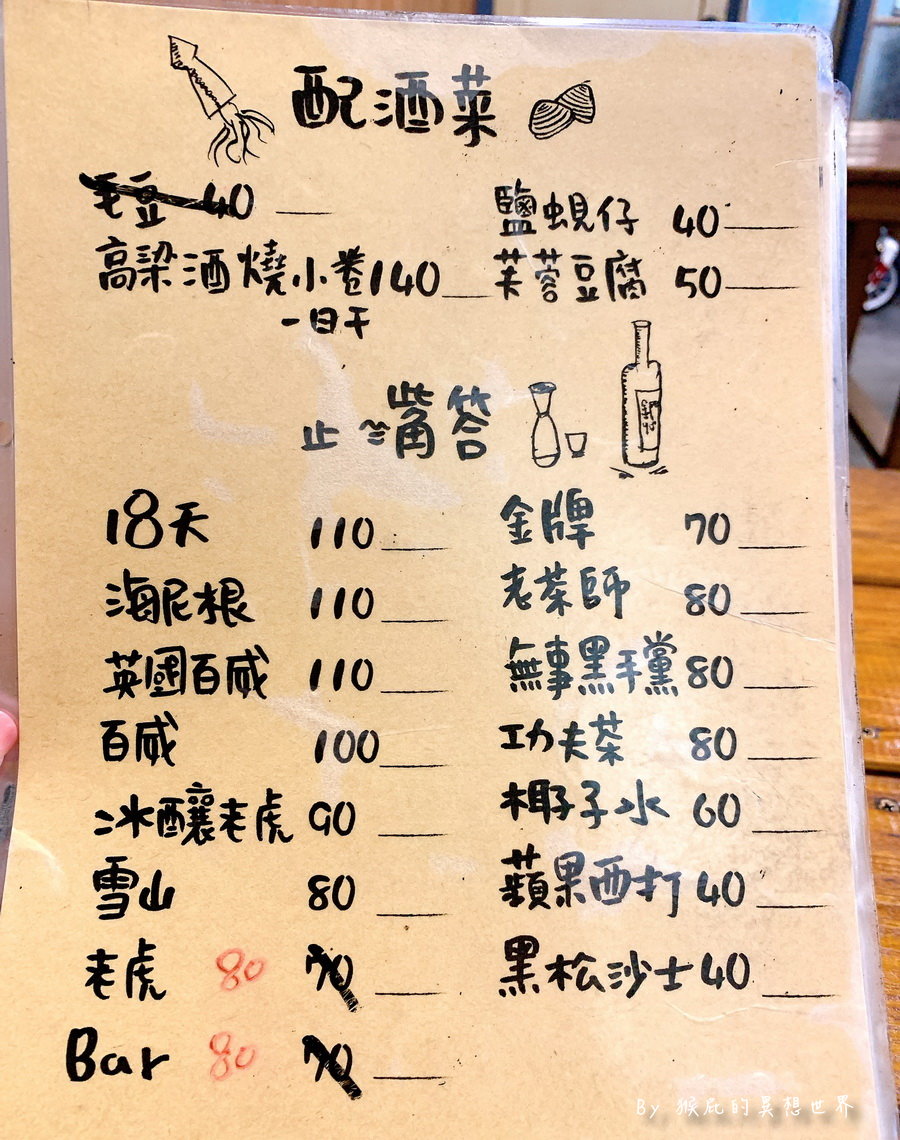 配酒菜
毛豆 40
鹽蜆仔 40
高梁酒燒小卷 140
一日干
芙蓉豆腐 50
止嘴答
18天 110
金牌 70
海尼根 110
老茶師 80
英國百威 110
無事黑手黨 80
百威 100
功夫茶 80
冰釀老虎 90
椰子水 60
雪山 80
蘋果西打 40
老虎 80 70
黑松沙士 40
Bar 80 70
By 猴屁的異想世界